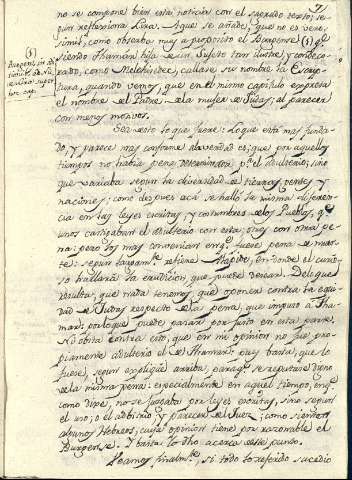 7
no se compone bien esta noticia con el sagrado texto, se-
gun reflexiona Lira. Aque se añade, que no es vero-
simil, como observa muy a proposito el Burgense (5) qᵉ
siendo Thamar hija de un Sujeto tan ilustre, y condeco-
rado, como Melchisedec, callase su nombre la Escrip-
tura, quando vemos, que en el mismo capitulo expresa
el nombre del Padre de la muger de Judas, al parecer
con menos motivos.
(5)
Burgens. in ad-
super
hoc cap.
Sea desto lo que fuere: Lo que està mas funda-
do, y parece mas conforme ala verdad es; que por aquellos
tiempos no havia pena determinada pᵃ el adulterio; sino
que variaba segun la diversidad de tierras, gentes, y
naciones; como despues acà se hallò la misma diferen-
cia en las leyes escritas, y costumbres delos Pueblos, qᵉ
unos castigaban el adulterio con esta, otros con otra pe-
na: pero los mas convenian enqᵉ fuese pena de muer-
te: segun largamᵗᵉ refiere Alapide, en donde el curio-
so hallarà la erudicion que puede desear. Delo que
resulta, que nada tenemos que oponer contra la equi-
dad de Judas respecto dela pena, que impuso a Tha-
mar: porloque puede pasar por justo en esta parte.
No obsta contra esto, que en mi opinion no fue pro-
piamente adulterio el de Thamar: pues basta, que lo
fuese, segun expliquè arriba, paraqᵉ se reputase digno
dela misma pena: especialmente en aquel tiempo, enqᵉ
como dixe, no se juzgaba por leyes escritas, sino segun
el uso; o el adbitrio, y parecer del Juez; como sienten
algunos Hebreos, cuia opinion tiene por razonable el
Burgense. I basta lo dho acerca deste punto.
Veamos finalmᵗᵉ, si todo lo referido sucediò